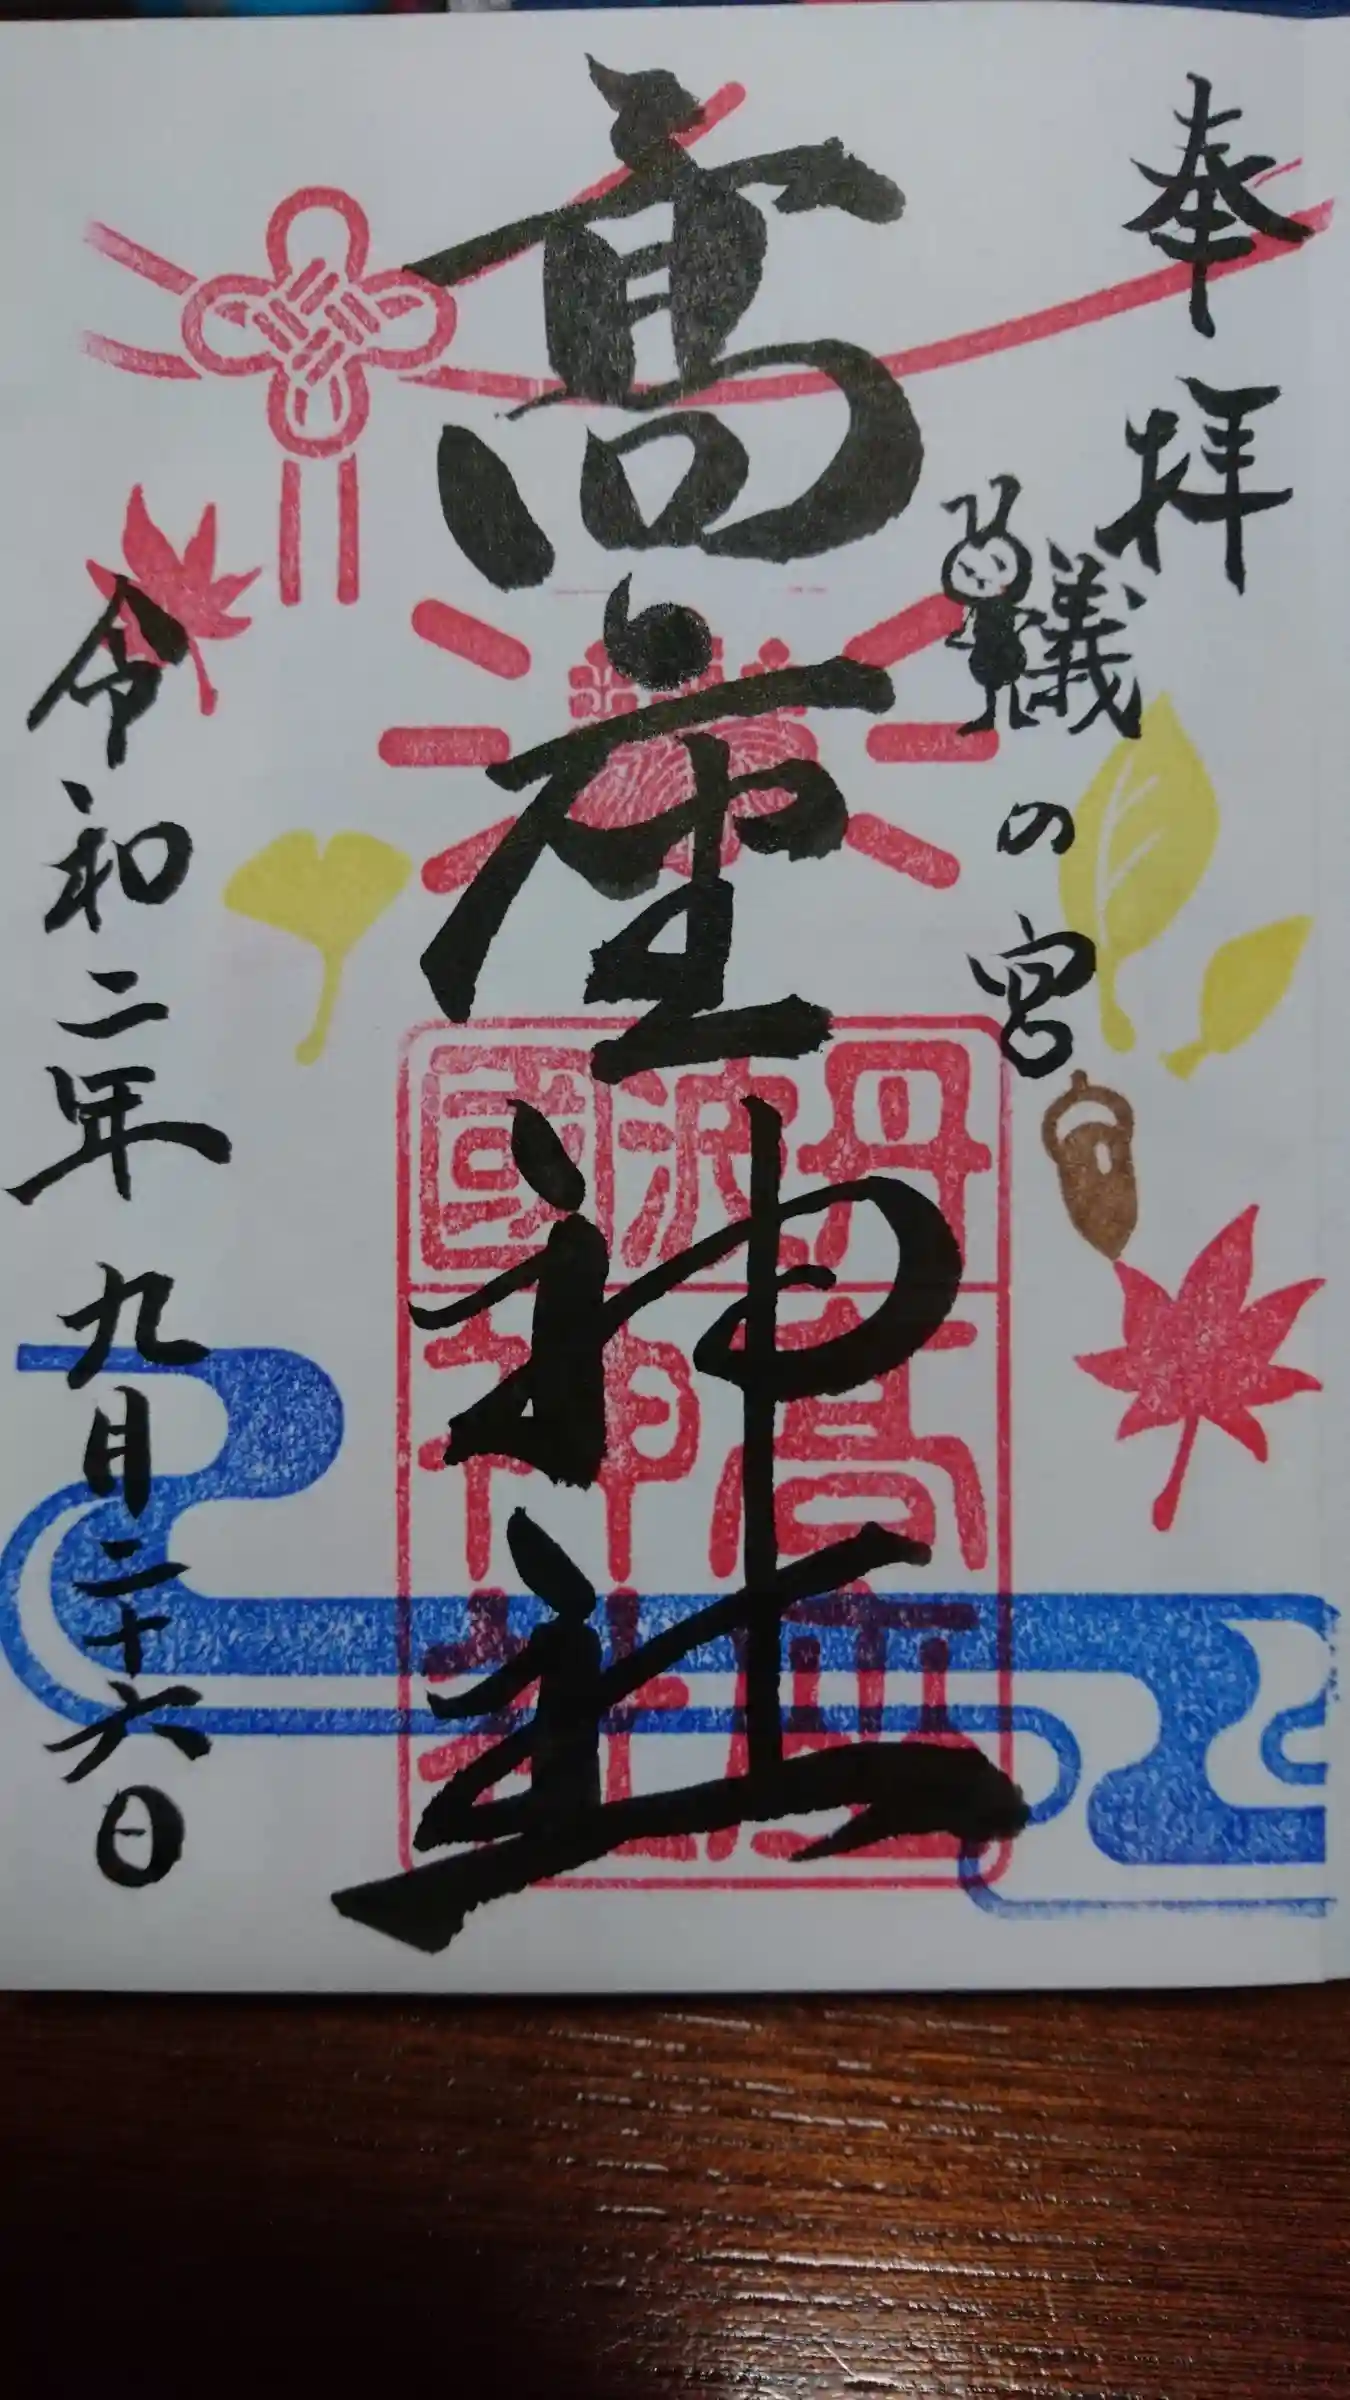 奉拝
蟻の宮
高座神社
丹波國
高座
神社
令和二年九月二十六日